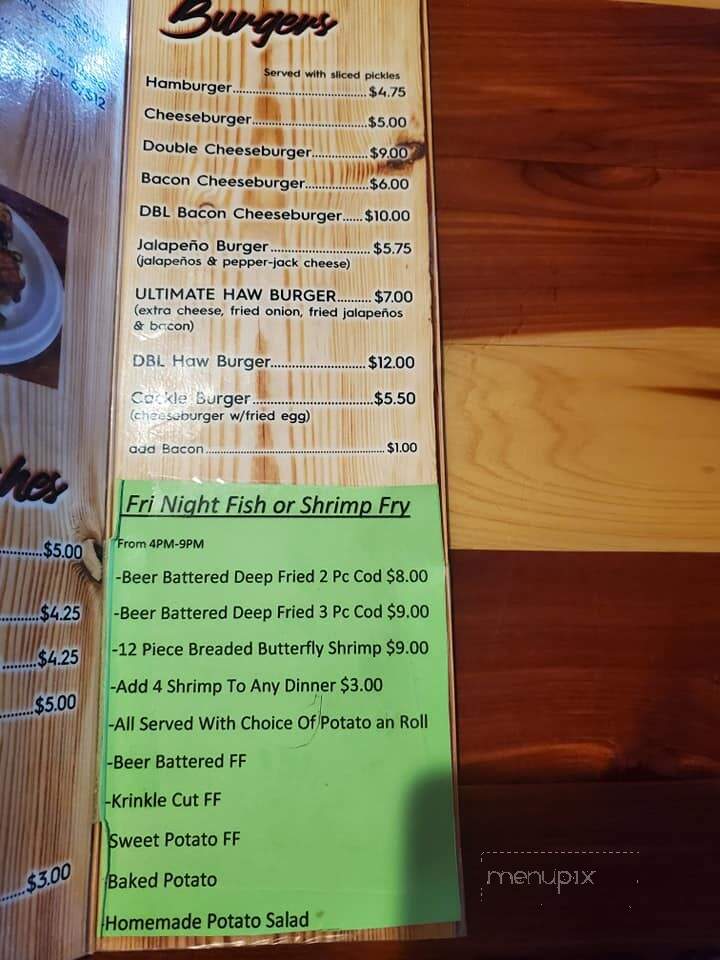 $8.00
$2.50
or 6/$12
ches
$5.00
$4.25
$4.25
$5.00
$3.00
Burgers
Served with sliced pickles
Hamburger....................................$4.75
Cheeseburger...............................$5.00
Double Cheeseburger...............$9.00
Bacon Cheeseburger.................$6.00
DBL Bacon Cheeseburger......$10.00
Jalapeño Burger...........................$5.75
(jalapeños & pepper-jack cheese)
ULTIMATE HAW BURGER..........$7.00
(extra cheese, fried onion, fried jalapeños
& bacon)
DBL Haw Burger..........................$12.00
Cackle Burger................................$5.50
(cheeseburger w/fried egg)
add Bacon...................................................$1.00
Fri Night Fish or Shrimp Fry
From 4PM-9PM
-Beer Battered Deep Fried 2 Pc Cod $8.00
-Beer Battered Deep Fried 3 Pc Cod $9.00
-12 Piece Breaded Butterfly Shrimp $9.00
-Add 4 Shrimp To Any Dinner $3.00
-All Served With Choice Of Potato an Roll
-Beer Battered FF
-Krinkle Cut FF
Sweet Potato FF
Baked Potato
-Homemade Potato Salad
menupix